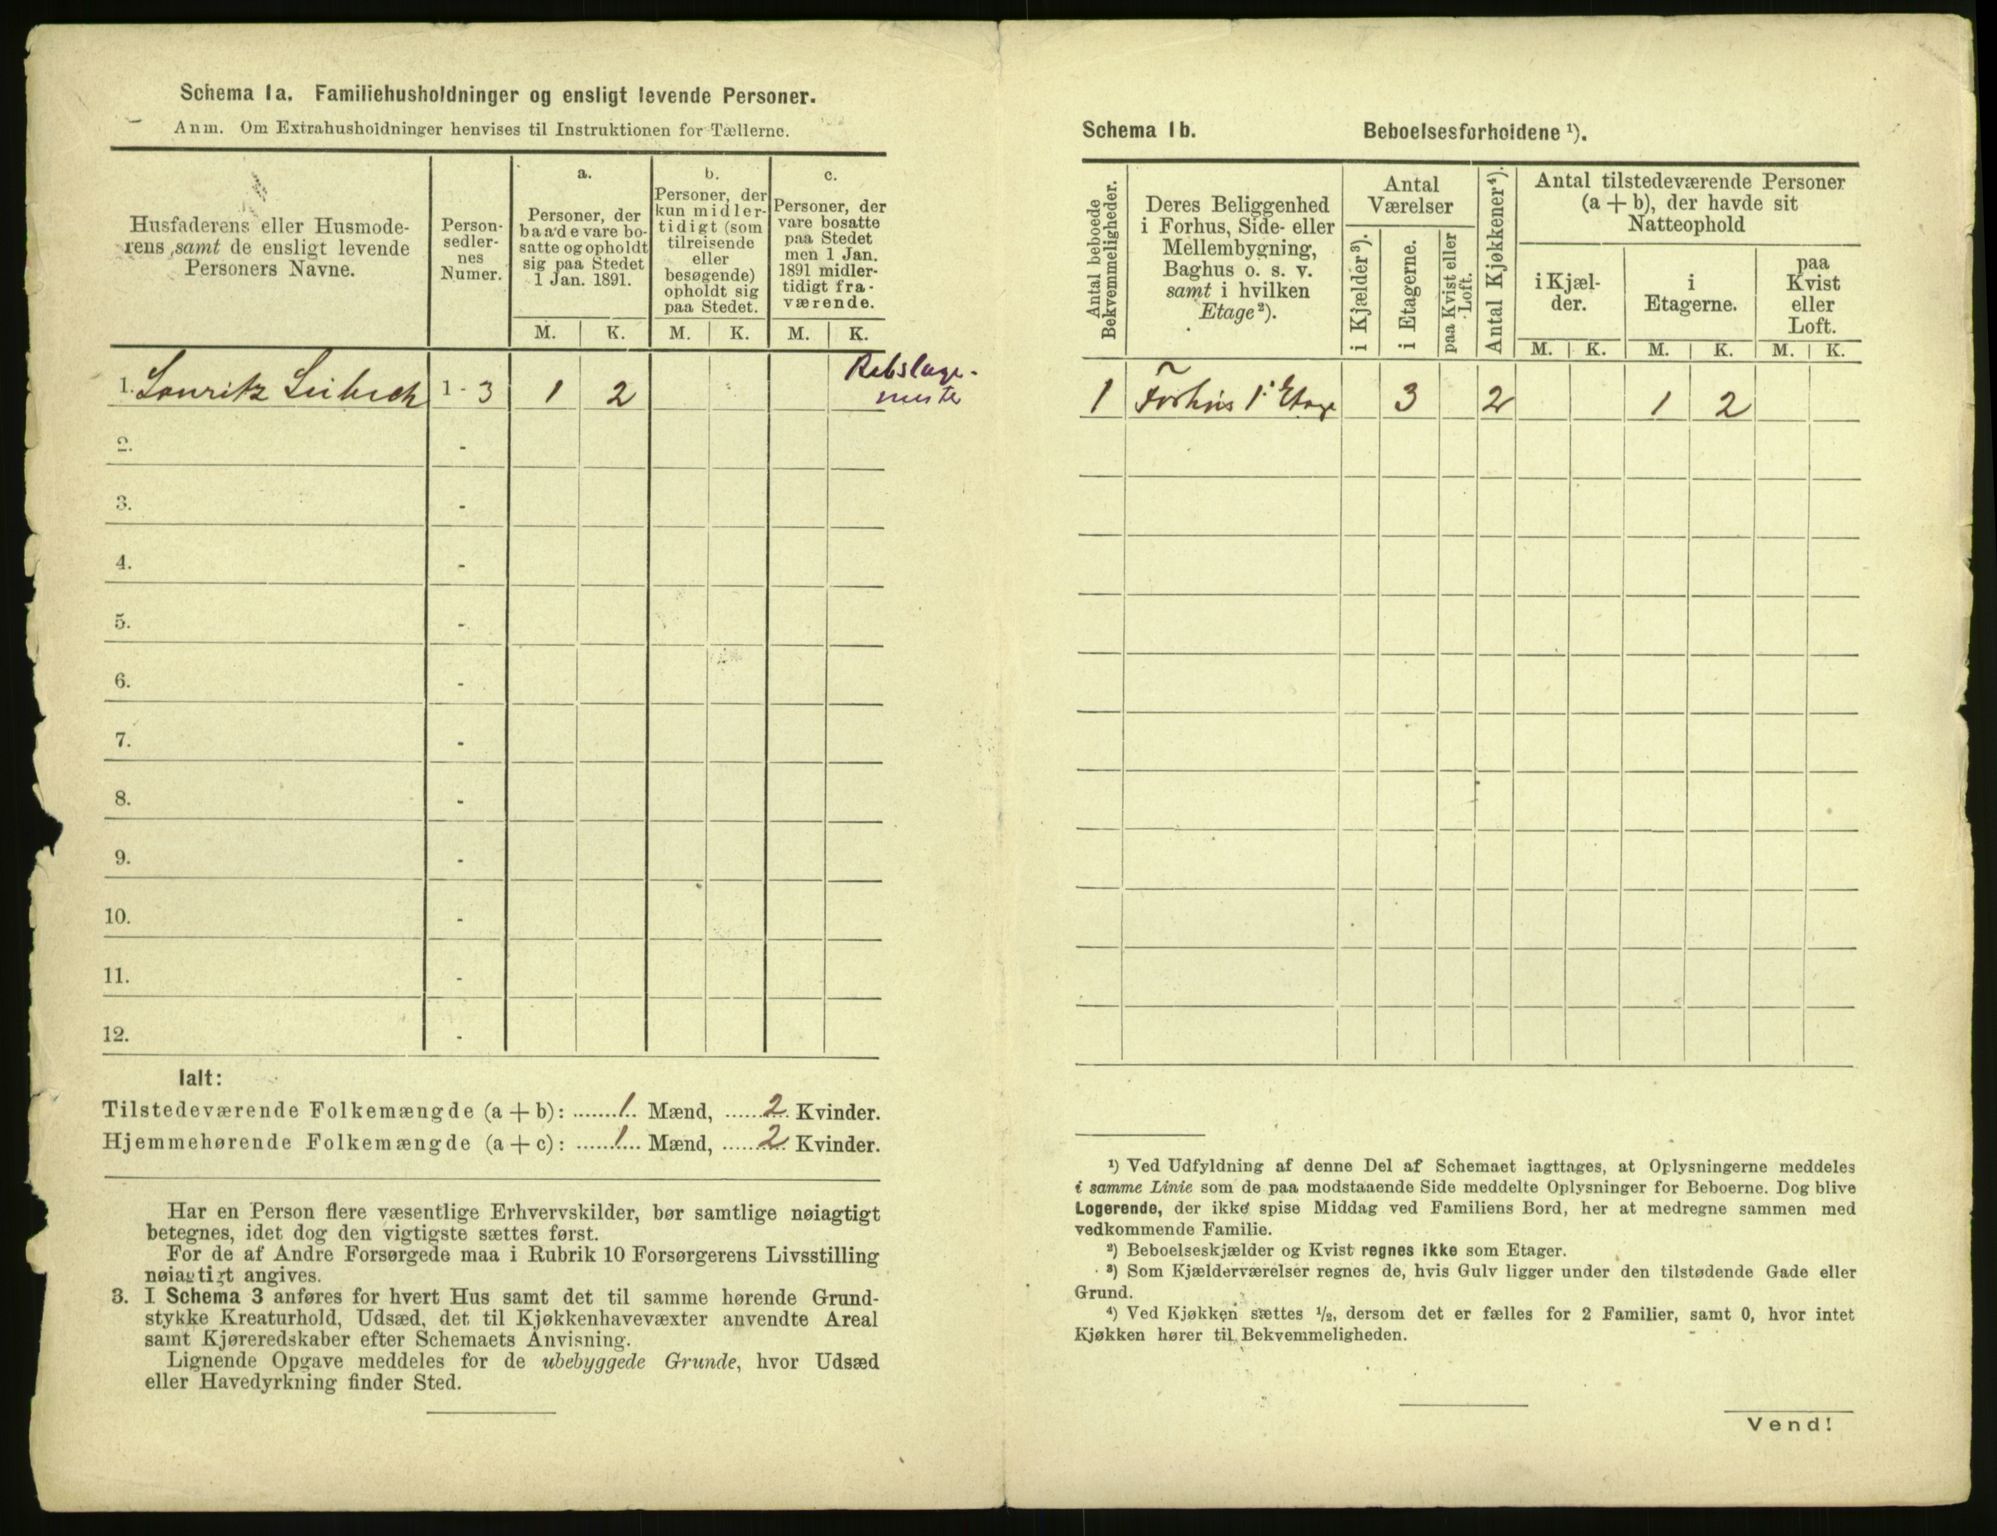 Schema 1a. Familiehusholdninger og ensligt levende Personer.
Anm. Om Extrahusholdninger henvises til Instruktionen for Tællerne.
Husfaderens eller Husmode-
rens samt de ensligt levende
Personers Navne.
Person-
sedler-
nes
Numer.
a.
Personer, der
baade vare bo-
satte og opholdt
sig paa Stedet
1 Jan. 1891.
b.
Personer, der
kun midler-
tidigt (som
tilreisende
eller
besøgende)
opholdt sig
paa Stedet.
c.
Personer, der
vare bosatte
paa Stedet
men 1 Jan.
1891 midler-
tidigt fra-
værende.
M. K. M. K. M. K.
1. Lauritz 1 - 3 1 2
Rebslager-
mester
2. -
3. -
4. -
5. -
6. -
7. -
8. -
9. -
10. -
11. -
12. -
Ialt:
Tilstedeværende Folkemængde (a + b): ....... 1 .. Mænd, ...... 2 .. Kvinder.
Hjemmehørende Folkemængde (a + c): ...... 1 ... Mænd, ...... 2 .. Kvinder.
Har en Person flere væsentlige Erhvervskilder, bør samtlige nøiagtigt
betegnes, idet dog den vigtigste sættes først.
For de af Andre Forsørgede maa i Rubrik 10 Forsørgerens Livsstilling
nøiagtigt angives.
3. I Schema 3 anføres for hvert Hus samt det til samme hørende Grund-
stykke Kreaturhold, Udsæd, det til Kjøkkenhavevæxter anvendte Areal
samt Kjøreredskaber efter Schemaets Anvisning.
Lignende Opgave meddeles for de ubebyggede Grunde, hvor Udsæd
eller Havedyrkning finder Sted.
Schema 1b. Beboelsesforholdene ¹).
Antal beboede
Bekvemmeligheder.
Deres Beliggenhed
i Forhus, Side- eller
Mellembygning,
Baghus o. s. v.
samt i hvilken
Etage ²).
Antal
Værelser
i Kjælder ³).
i Etagerne.
paa Kvist eller
Loft.
Antal Kjøkkener ⁴).
Antal tilstedeværende Personer
(a + b), der havde sit
Natteophold
i Kjæl-
der.
i
Etagerne.
paa
Kvist
eller
Loft.
M. K. M. K. M. K.
1 Forhus 1. Etage 3 2 1 2
¹) Ved Udfyldning af denne Del af Schemaet iagttages, at Oplysningerne meddeles
i samme Linie som de paa modstaaende Side meddelte Oplysninger for Beboerne. Dog blive
Logerende, der ikke spise Middag ved Familiens Bord, her at medregne sammen med
vedkommende Familie.
²) Beboelseskjælder og Kvist regnes ikke som Etager.
³) Som Kjælderværelser regnes de, hvis Gulv ligger under den tilstødende Gade eller
Grund.
⁴) Ved Kjøkken sættes ½, dersom det er fælles for 2 Familier, samt 0, hvor intet
Kjøkken hører til Bekvemmeligheden.
Vend!